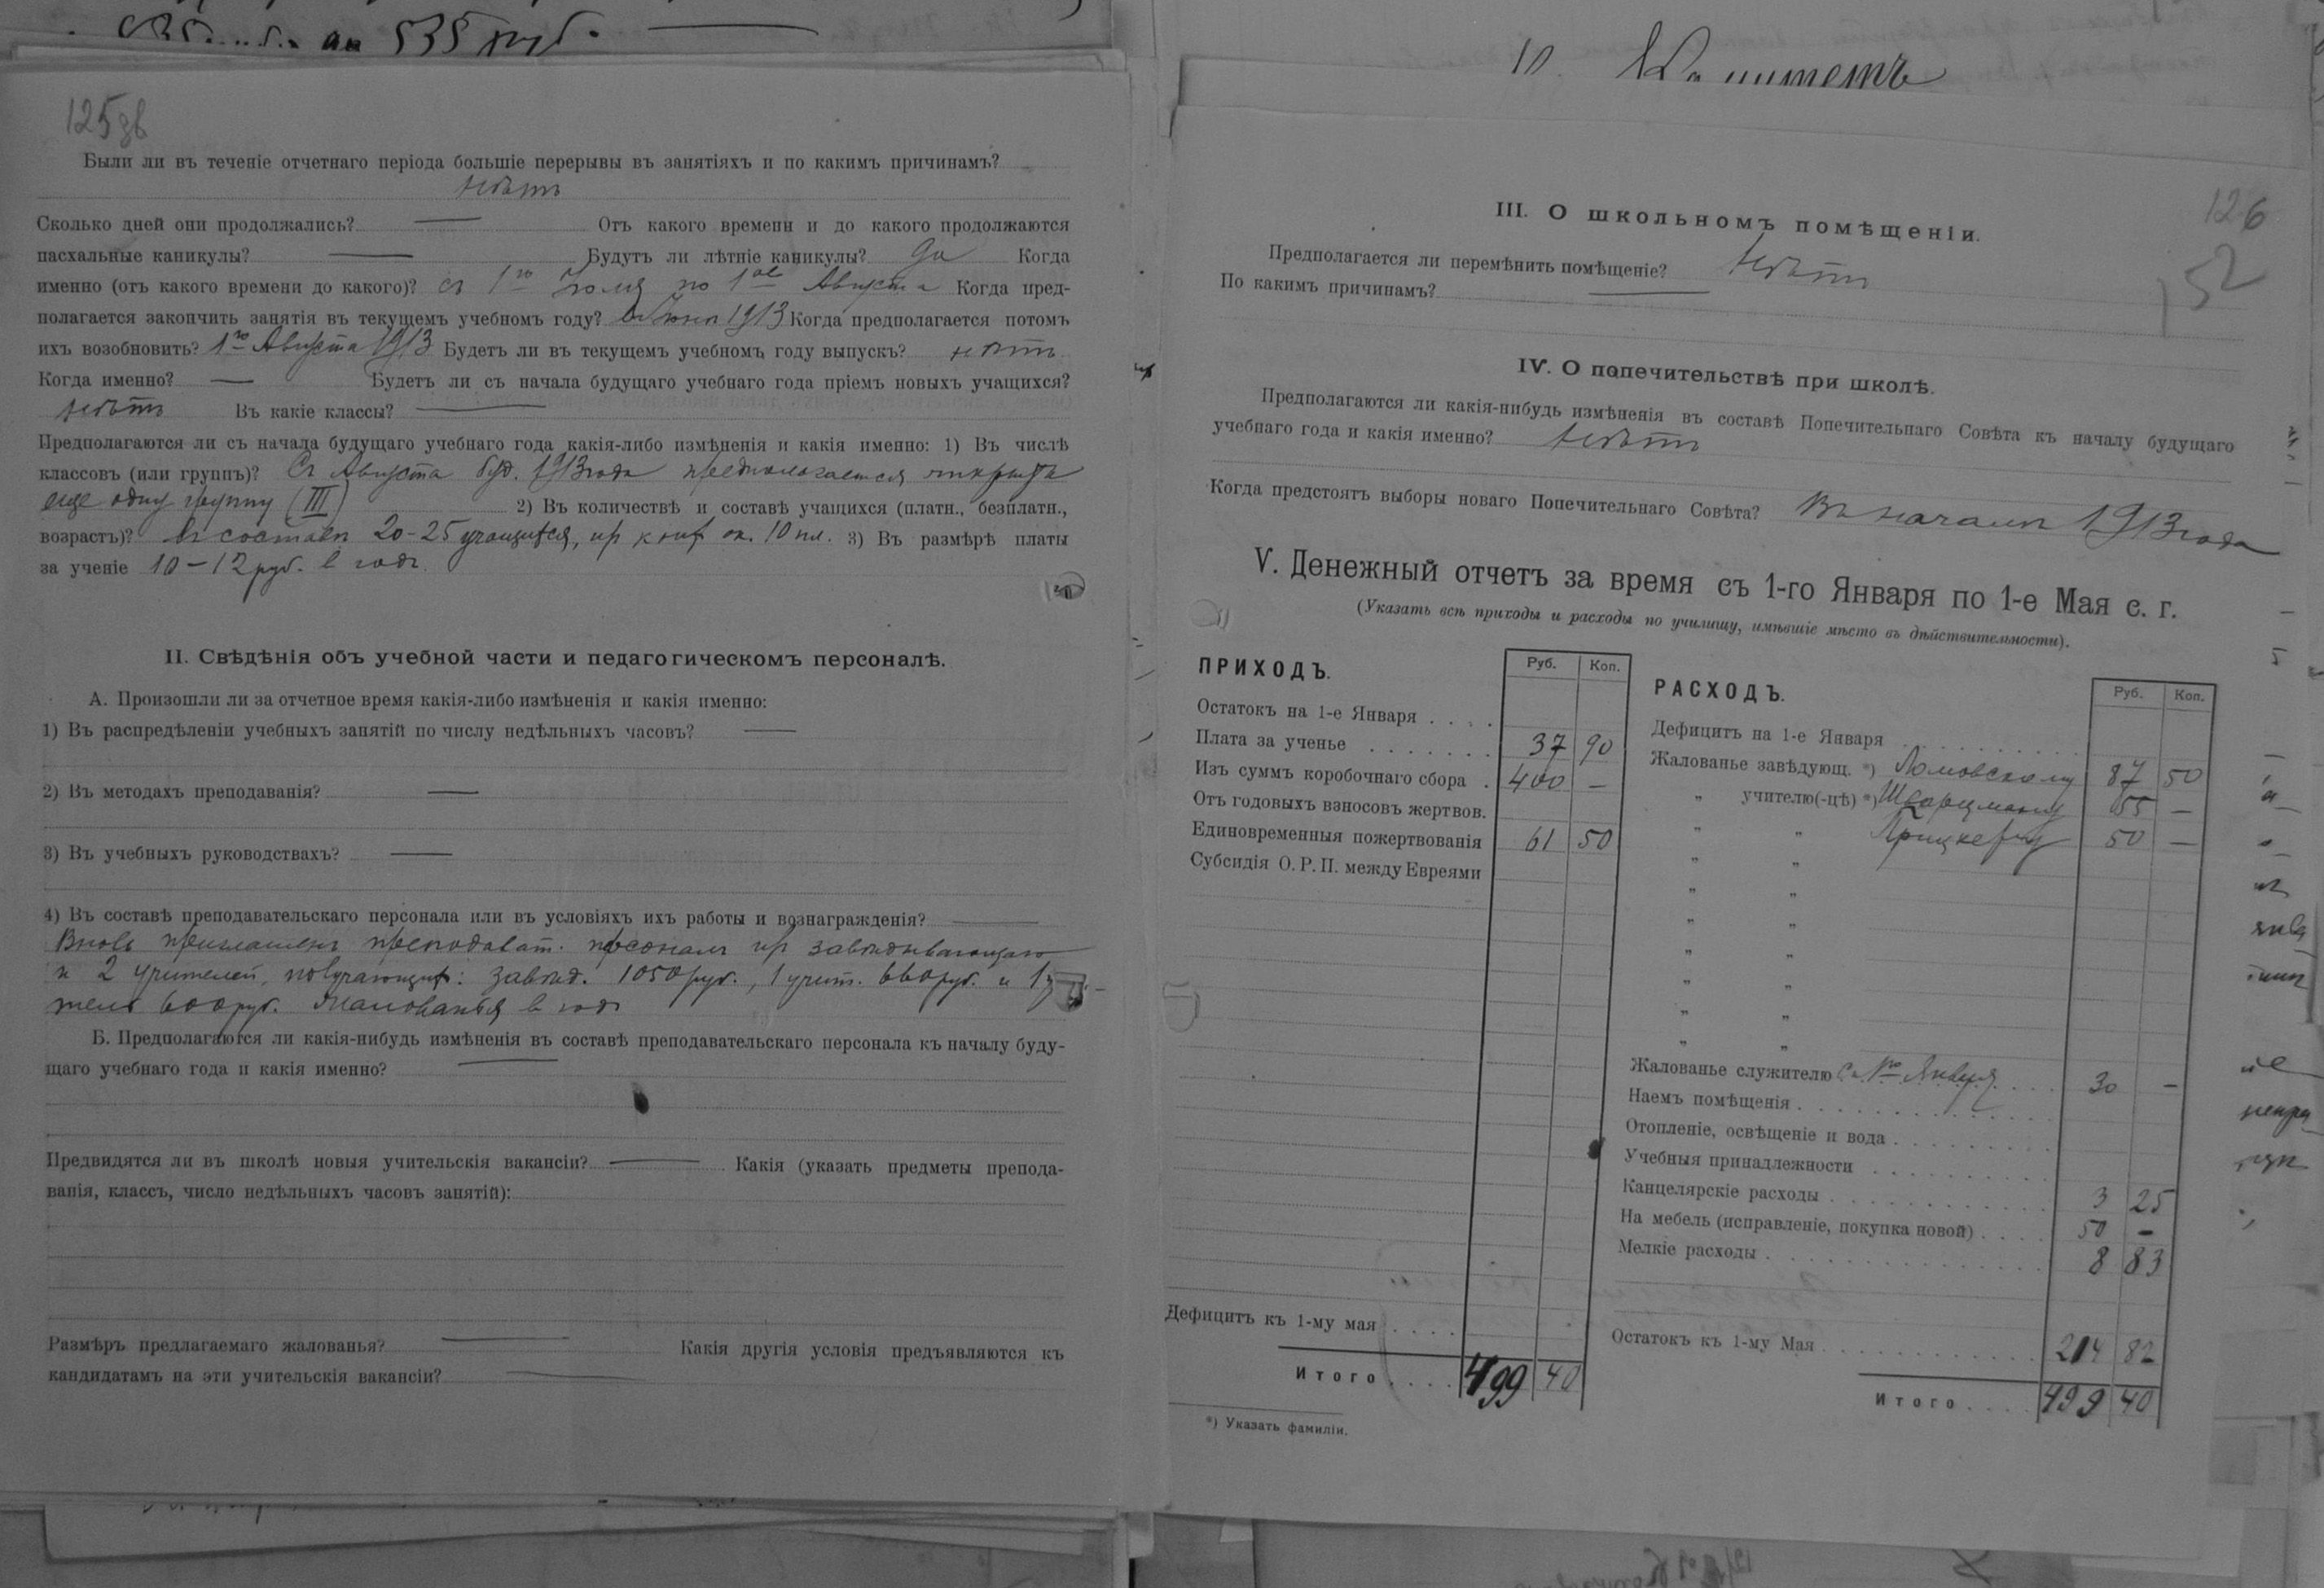 на 535 руб.
125 об
Были ли въ теченіе отчетнаго періода большіе перерывы въ занятіяхъ и по какимъ причинамъ?
Нѣтъ
Сколько дней они продолжались? — Отъ какого времени и до какого продолжаются
пасхальные каникулы? — Будутъ ли лѣтніе каникулы? Да Когда
именно (отъ какого времени до какого)? съ 1го Іюля по 1ое Августа Когда пред-
полагается закончить занятія въ текущемъ учебномъ году? 1913 Когда предполагается потомъ
ихъ возобновить? 1го Августа 1913 Будетъ ли въ текущемъ учебномъ году выпускъ? нѣтъ
Когда именно? — Будетъ ли съ начала будущаго учебнаго года пріемъ новыхъ учащихся?
Нѣтъ Въ какіе классы? —
Предполагаются ли съ начала будущаго учебнаго года какія-либо измѣненія и какія именно: 1) Въ числѣ
классовъ (или группъ)? Съ Августа буд. 1913 года предполагается открыть
еще одну группу (III) 2) Въ количествѣ и составѣ учащихся (платн., безплатн.,
возрастъ)? въ составѣ 20-25 учащихся, ок. 10 пл. 3) Въ размѣрѣ платы
за ученіе 10-12 руб. въ годъ.
II. Свѣдѣнія объ учебной части и педагогическомъ персоналѣ.
А. Произошли ли за отчетное время какія-либо измѣненія и какія именно:
1) Въ распредѣленіи учебныхъ занятій по числу недѣльныхъ часовъ? —
2) Въ методахъ преподаванія? —
3) Въ учебныхъ руководствахъ? —
4) Въ составѣ преподавательскаго персонала или въ условіяхъ ихъ работы и вознагражденія? —
Вновь приглашенъ преподават. персоналъ завѣдывающаго
и 2 учителей, получающихъ: завѣд. 1050 руб., 1 учит. 660 руб. и 1
тель 600 руб. жалованья въ годъ
Б. Предполагаются ли какія-нибудь измѣненія въ составѣ преподавательскаго персонала къ началу буду-
щаго учебнаго года и какія именно? —
Предвидятся ли въ школѣ новыя учительскія вакансіи? — Какія (указать предметы препода-
ванія, классъ, число недѣльныхъ часовъ занятій):
Размѣръ предлагаемаго жалованья? — Какія другія условія предъявляются къ
кандидатамъ на эти учительскія вакансіи? —
10.
126
152
III. О школьномъ помѣщеніи.
Предполагается ли перемѣнить помѣщеніе? Нѣтъ
По какимъ причинамъ? —
IV. О попечительствѣ при школѣ.
Предполагаются ли какія-нибудь измѣненія въ составѣ Попечительнаго Совѣта къ началу будущаго
учебнаго года и какія именно? Нѣтъ
Когда предстоятъ выборы новаго Попечительнаго Совѣта? Въ началѣ 1913 года
V. Денежный отчетъ за время съ 1-го Января по 1-е Мая с. г.
(Указать всѣ приходы и расходы по училищу, имѣвшіе мѣсто въ дѣйствительности).
ПРИХОДЪ. Руб. Коп.
Остатокъ на 1-е Января . . . .
Плата за ученье . . . . . . . 37 90
Изъ суммъ коробочнаго сбора . 400 —
Отъ годовыхъ взносовъ жертвов.
Единовременныя пожертвованія 61 50
Субсидія О. Р. П. между Евреями
Дефицитъ къ 1-му мая . . . .
Итого . . . . 499 40
*) Указать фамиліи.
РАСХОДЪ. Руб. Коп.
Дефицитъ на 1-е Января . . . . . . . . . . .
Жалованье завѣдующ. *) Ломовскому 87 50
„ учителю(-цѣ) *) Шварцману 55 —
„ „ Прицкеру 50 —
„ „
„ „
„ „
„ „
„ „
„ „
„ „
Жалованье служителю съ 1го Января . . . 30 —
Наемъ помѣщенія . . . . . . . . . . . . . .
Отопленіе, освѣщеніе и вода . . . . . . . . .
Учебныя принадлежности . . . . . . . . . .
Канцелярскіе расходы . . . . . . . . . . . . 3 25
На мебель (исправленіе, покупка новой) . . . . 50 —
Мелкіе расходы . . . . . . . . . . . . . . . 8 83
Остатокъ къ 1-му Мая . . . . . . . . . . . . 214 82
Итого . . . . 499 40